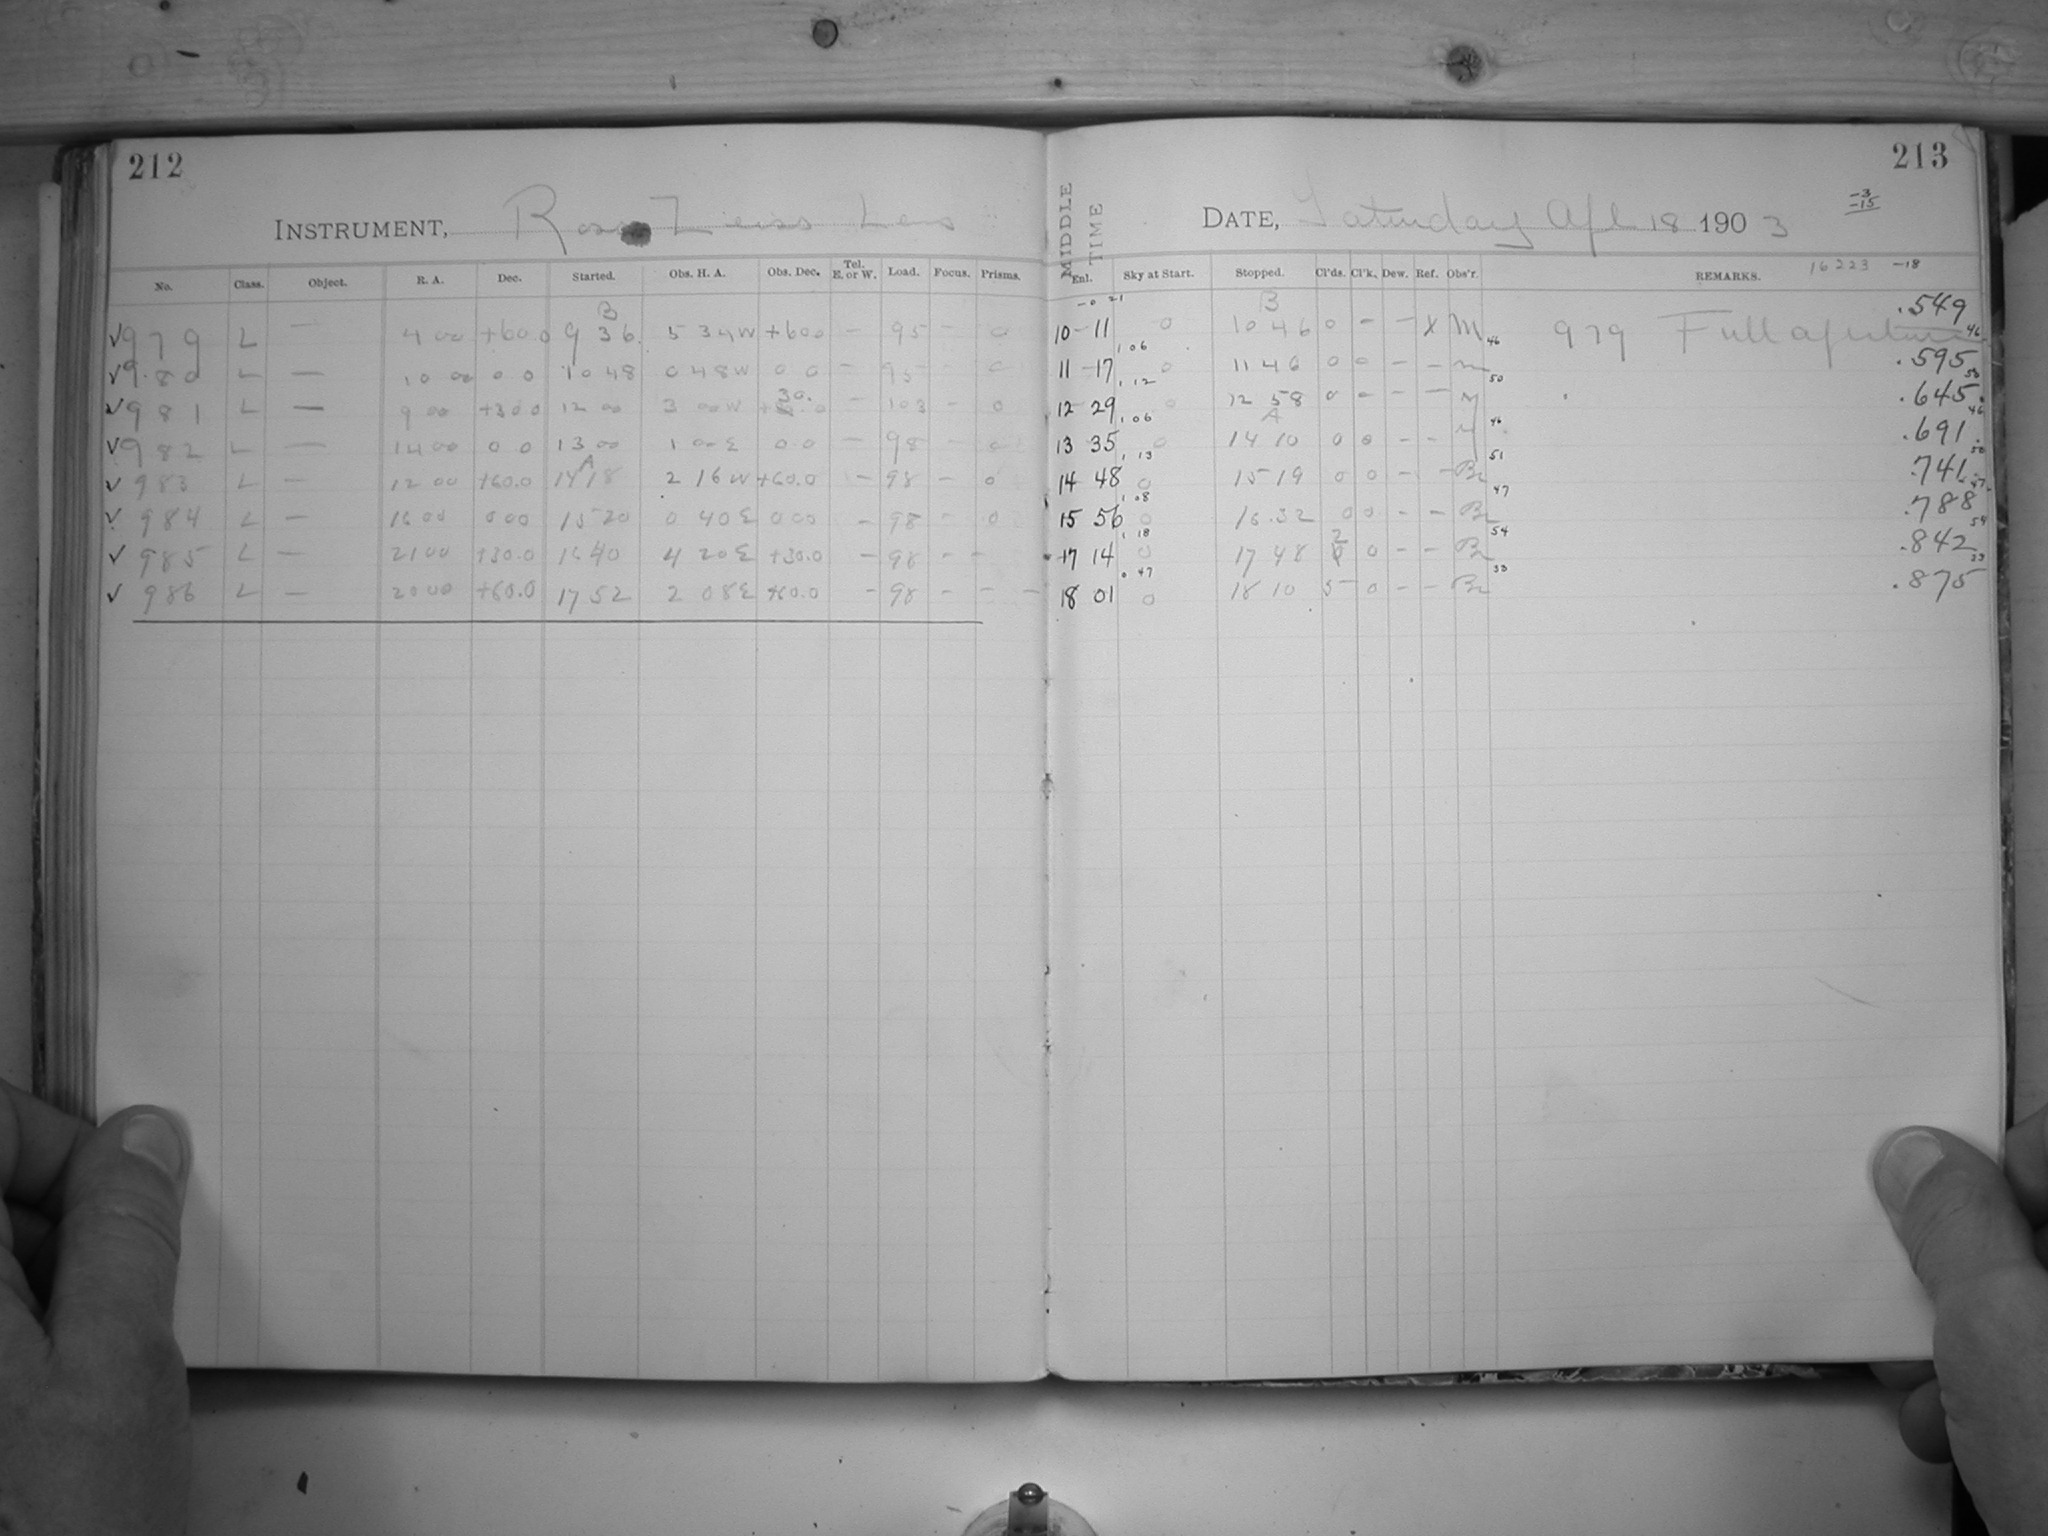 212
INSTRUMENT, Ross Zeiss Lens
No. Class. Object. R. A. Dec. Started. Obs. H. A. Obs. Dec. Tel. E. or W. Load. Focus. Prisms.
B
✓979 L — 4 00 +60.0 9 36 5 34W +60.0 – 95 – 0
✓980 L — 10 00 0 0 10 48 0 48W 0 0 – 95 – 0
30.
✓981 L — 9 00 +30.0 12 00 3 00W – 103 – 0
✓982 L — 14 00 0 0 13 00 1 00E 0 0 – 98 – 0
A
✓983 L — 12 00 +60.0 14 18 2 16W +60.0 – 98 – 0
✓984 L — 16 00 0 00 15 20 0 40E 0 00 – 98 – 0
✓985 L — 21 00 +30.0 16 40 4 20E +30.0 – 98 – –
✓986 L — 20 00 +60.0 17 52 2 08E +60.0 – 98 – – –
213
-3
-15
MIDDLE TIME
DATE, Saturday Apl 18 1903
Enl. Sky at Start. Stopped. Cl'ds. Cl'k. Dew. Ref. Obs'r. REMARKS. 16223 -18
-0 21 B .549
10-11 0 10 46 0 – – X M 46 979 Full aperture 46
1 06
11-17 0 11 46 0 0 – – m 50 .595 50
1 12
12 29 0 12 58 0 0 – – M .645
1 06 A 46 46
13 35 0 14 10 0 0 – – M .691
1 13 51 50
14 48 0 15 19 0 0 – – Br .741
1 08 47 47
15 56 0 16.32 0 0 – – Br .788
1 18 2 54 54
17 14 0 17 48 0 – – Br .842
0 47 33 33
18 01 0 18 10 5 0 – – Br .875